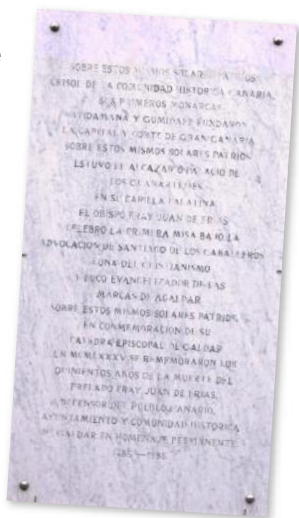 SOBRE ESTOS MISMOS SOLARES PATRIOS
CRISOL DE LA COMUNIDAD HISTORICA CANARIA,
SUS PRIMEROS MONARCAS
Y FUNDARON
LA CAPITAL Y CORTE DE GRAN CANARIA
SOBRE ESTOS MISMOS SOLARES PATRIOS
ESTUVO EL ALCAZAR O PALACIO DE
LOS GUANARTEMES
EN SU CAPILLA PALATINA
EL OBISPO FRAY JUAN DE FRIAS
CELEBRO LA PRIMERA MISA BAJO LA
ADVOCACION DE SANTIAGO DE LOS CABALLEROS
CUNA DEL CRISTIANISMO
Y FOCO EVANGELIZADOR DE LAS
MARCAS DE AGALDAR
SOBRE ESTOS MISMOS SOLARES PATRIOS
EN CONMEMORACION DE SU
CATEDRA EPISCOPAL DE GALDAR
EN MCMLXXXV SE REMEMORARON LOS
QUINIENTOS AÑOS DE LA MUERTE DEL
PRELADO FRAY JUAN DE FRIAS,
DEFENSOR DEL PUEBLO CANARIO,
AYUNTAMIENTO Y COMUNIDAD HISTORICA
DE GALDAR EN HOMENAJE PERMANENTE